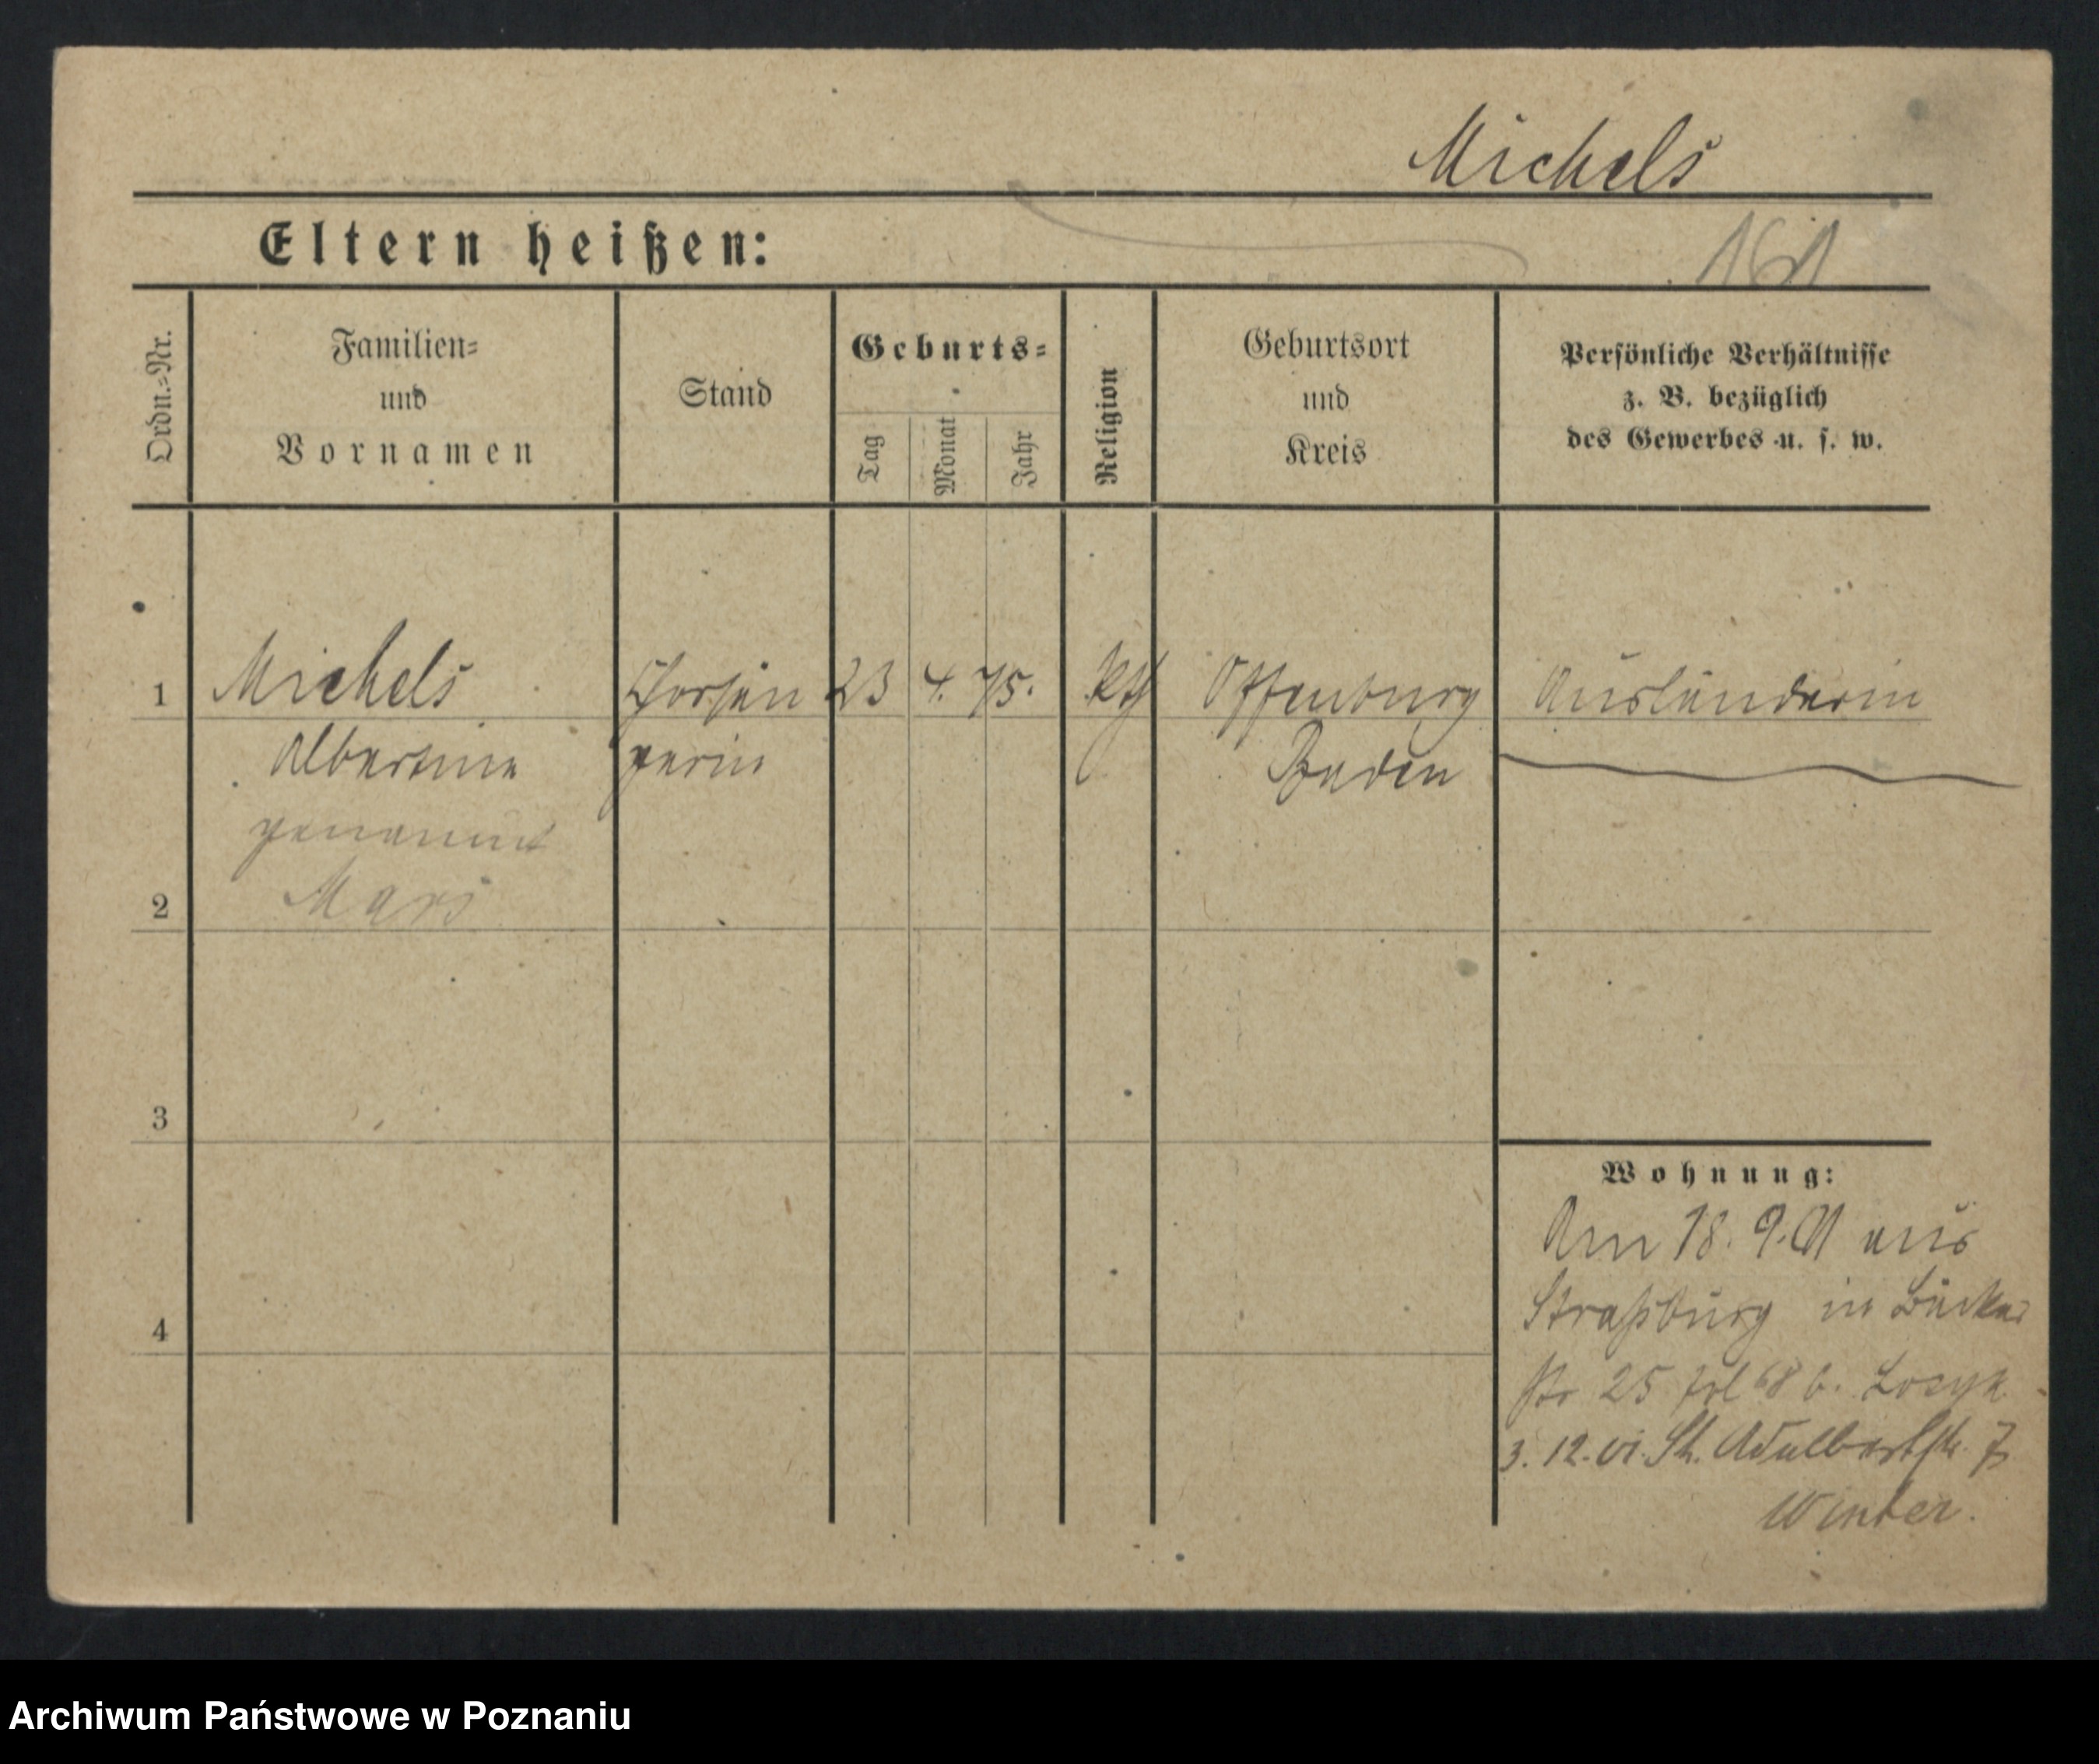 Michels
Eltern heißen:
161
Ordn.=Nr.
Familien=
und
Vornamen
Stand
Geburts=
Tag
Monat
Jahr
Religion
Geburtsort
und
Kreis
Persönliche Verhältnisse
z. B. bezüglich
des Gewerbes u. s. w.
1 Michels Chorsän 23 4. 75. kth Offenburg Ausländerin
Albertine gerin Baden
genannt
2 Mari
3
4
Wohnung:
Am 18. 9. 01 aus
Straßburg in Bäcker
str 25 b.
3. 12. 01. St. Adalbertstr. 7
Winter.
Archiwum Państwowe w Poznaniu